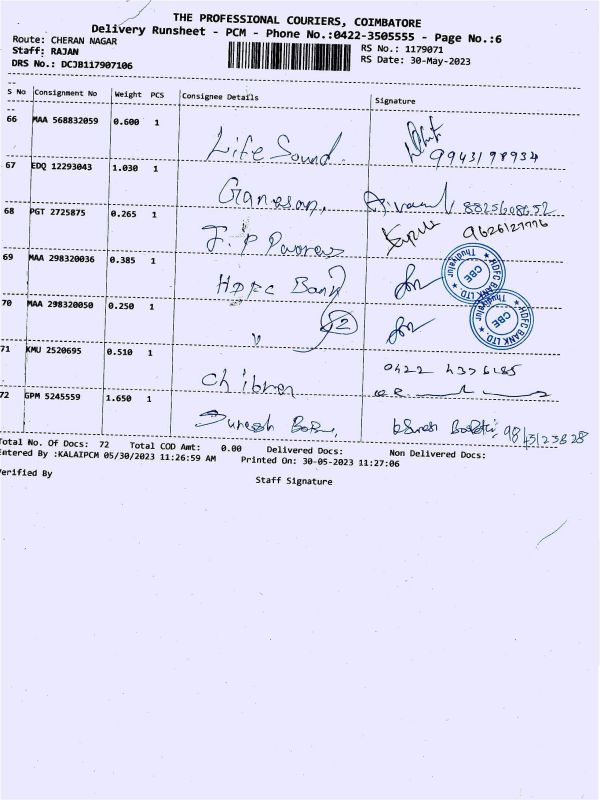 THE PROFESSIONAL COURIERS, COIMBATORE
Delivery Runsheet - PCM - Phone No.:0422-3505555 - Page No.:6
Route: CHERAN NAGAR
RS No.: 1179071
Staff: RAJAN
RS Date: 30-May-2023
DRS No.: DCJB117907106
S No Consignment No Weight PCS Consignee Details Signature
66 MAA 568832059 0.600 1 Life Sound 9943198934
67 EDQ 12293043 1.030 1 Ganesan,
68 PGT 2725875 0.265 1 9626127776
69 MAA 298320036 0.385 1 HDFC Bank
HDFC BANK LTD. Thudiyalur CBE
70 MAA 298320050 0.250 1 2
HDFC BANK LTD. Thudiyalur CBE
71 KMU 2520695 0.510 1 0422
72 GPM 5245559 1.650 1 Suresh
Total No. Of Docs: 72 Total COD Amt: 0.00 Delivered Docs: Non Delivered Docs:
Entered By :KALAIPCM 05/30/2023 11:26:59 AM Printed On: 30-05-2023 11:27:06
Verified By
Staff Signature